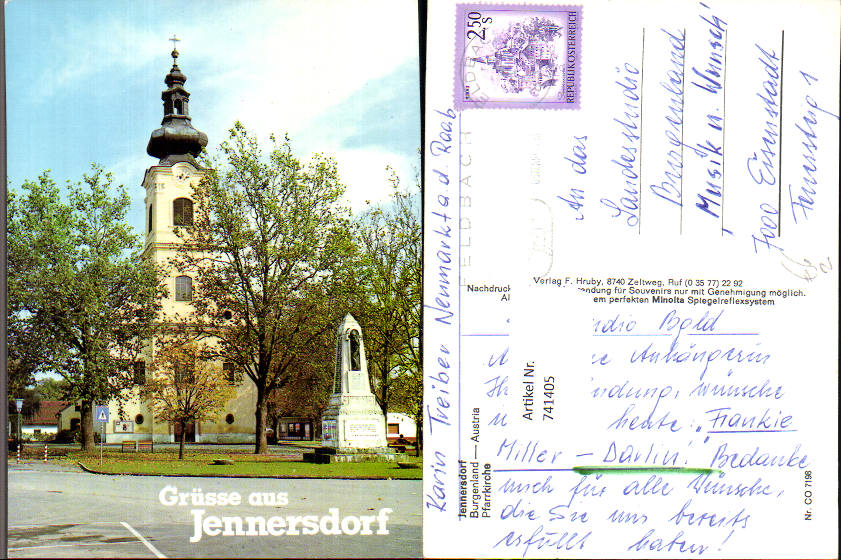 Grüsse aus
Jennersdorf
2.50
S
REPUBLIK ÖSTERREICH
FELDBACH
An das
Landesstudio
Burgenland
"Musik n. Wunsch"
7000 Eisenstadt
Karin Treiber Neumarkt a.d. Raab
Verlag F. Hruby, 8740 Zeltweg, Ruf (0 35 77) 22 92
Nachdruck
endung für Souvenirs nur mit Genehmigung möglich.
em perfekten Minolta Spiegelreflexsystem
Artikel Nr.
741405
dio Bgld
e Anhängerin
ndung, wünsche
heute: "Frankie
Miller – Darlin!" Bedanke
mich für alle Wünsche,
die Sie uns bereits
erfüllt haben!
Jennersdorf
Burgenland — Austria
Pfarrkirche
Nr. CO 7198